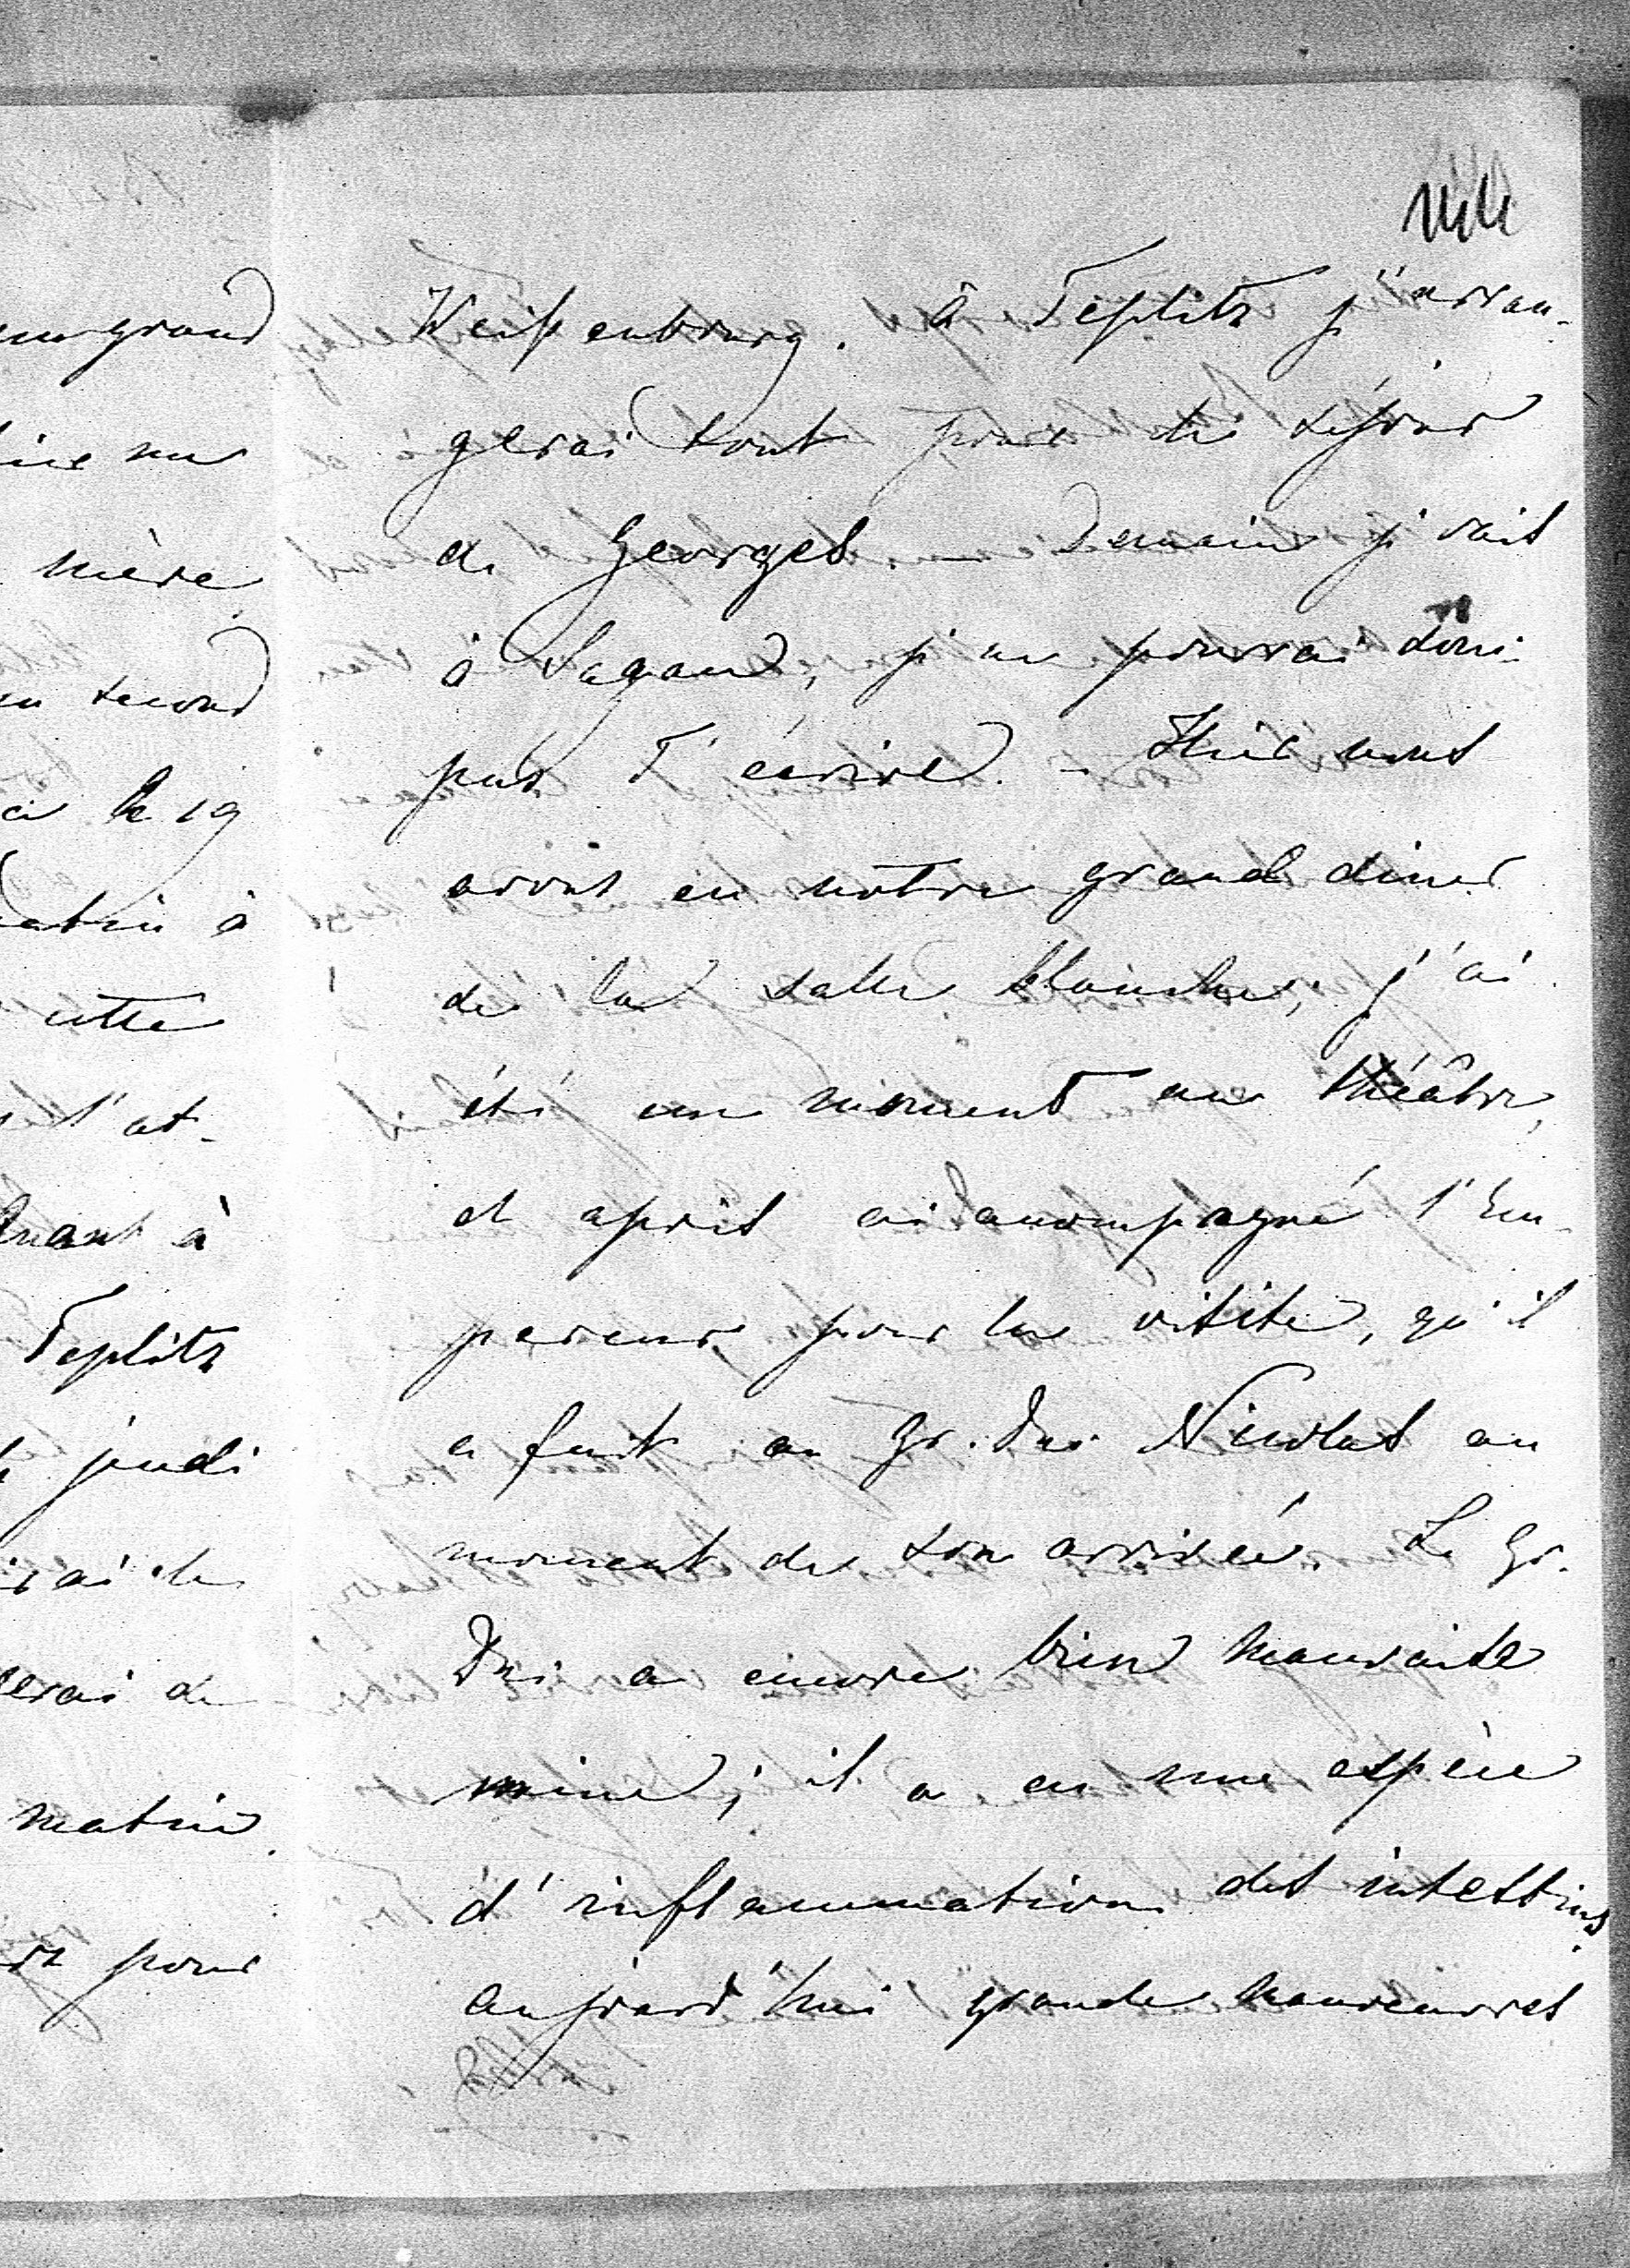 en grand
mère
second
le 19
matin à
cette
l'at-
quant à
Teplitz
jeudi
rai de
serai de
matin.
pour
Weissenbourg. à Teplitz j'arran-
gerai tout pour le séjour
de Georges. – Demain j'vais
à Sagan, je ne pourrai donc
pas T'écrire. – Hier nous
avons eu notre grand diner
de la salle blanche; j'ai
été un moment au théâtre,
et après ai accompagné l'Em-
pereur pour la visite, qu'il
a fait au Gr. Duc Nicolas au
moment de son arrivée. Le Gr.
Duc a encore bien mauvaise
mine; il a eu une espèce
d'inflammation des intestins.
aujourd'hui grande manœuvres